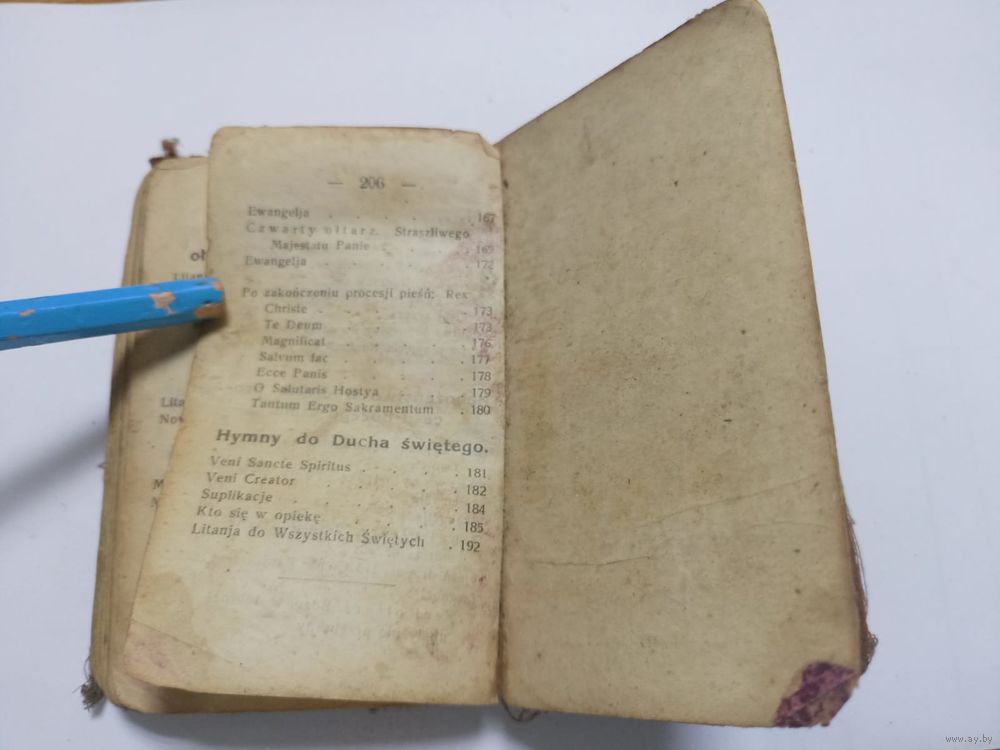 — 206 —
Ewangelja . . . . . 167
Czwarty ołtarz. Straszliwego
Majestatu Panie . . . . 169
Ewangelja . . . . . 172
Po zakończeniu procesji pieśń: Rex
Christe . . . . . 173
Te Deum . . . . . 173
Magnificat . . . . . 176
Salvum fac . . . . . 177
Ecce Panis . . . . . 178
O Salutaris Hostya . . . 179
Tantum Ergo Sakramentum . 180
Hymny do Ducha świętego.
Veni Sancte Spiritus . . . . 181
Veni Creator . . . . . 182
Suplikacje . . . . . 184
Kto się w opiekę . . . . 185
Litanja do Wszystkich Świętych . 192
www.ay.by